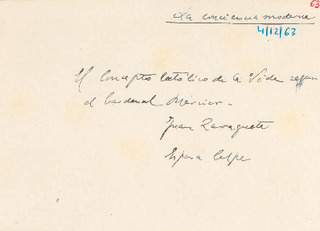 63
La conciencia moderna
4/12/63
El Concepto católico de la Vida según
el Cardenal Mercier.
Juan Zaragüeta
Espasa Calpe